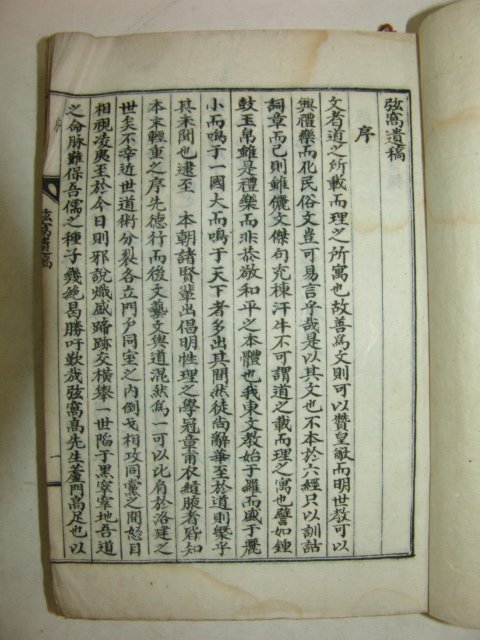 弦窩遺稿
序
文者道之所載而理之所寓也故善爲文則可以贊皇猷而明世敎可以
興禮樂而化民俗文豈可易言乎哉是以其文也不本於六經只以訓詁
詞章而已則雖儷文傑句充棟汗牛不可謂道之載而理之寓也譬如鍾
鼓玉帛雖是禮樂而非恭敬和平之本體也我東文敎始于羅而盛于麗
小而鳴于一國大而鳴于天下者多出其間然徒尙辭華至於道則槩乎
其未聞也逮至　本朝諸賢輩出倡明性理之學冠章甫衣縫腋者皆知
本末輕重之序先德行而後文藝文與道混然爲一可以比肩於洛建之
世矣不幸近世道術分裂各立門戶同室之內倒戈相攻同黨之間怒目
相視凌夷至於今日則邪說熾盛蹄跡交橫擧一世陷于黑窣窣地吾道
之命脉難保吾儒之種子幾絶曷勝吁歎哉弦窩高先生蘆門高足也以
序
弦窩遺稿
一